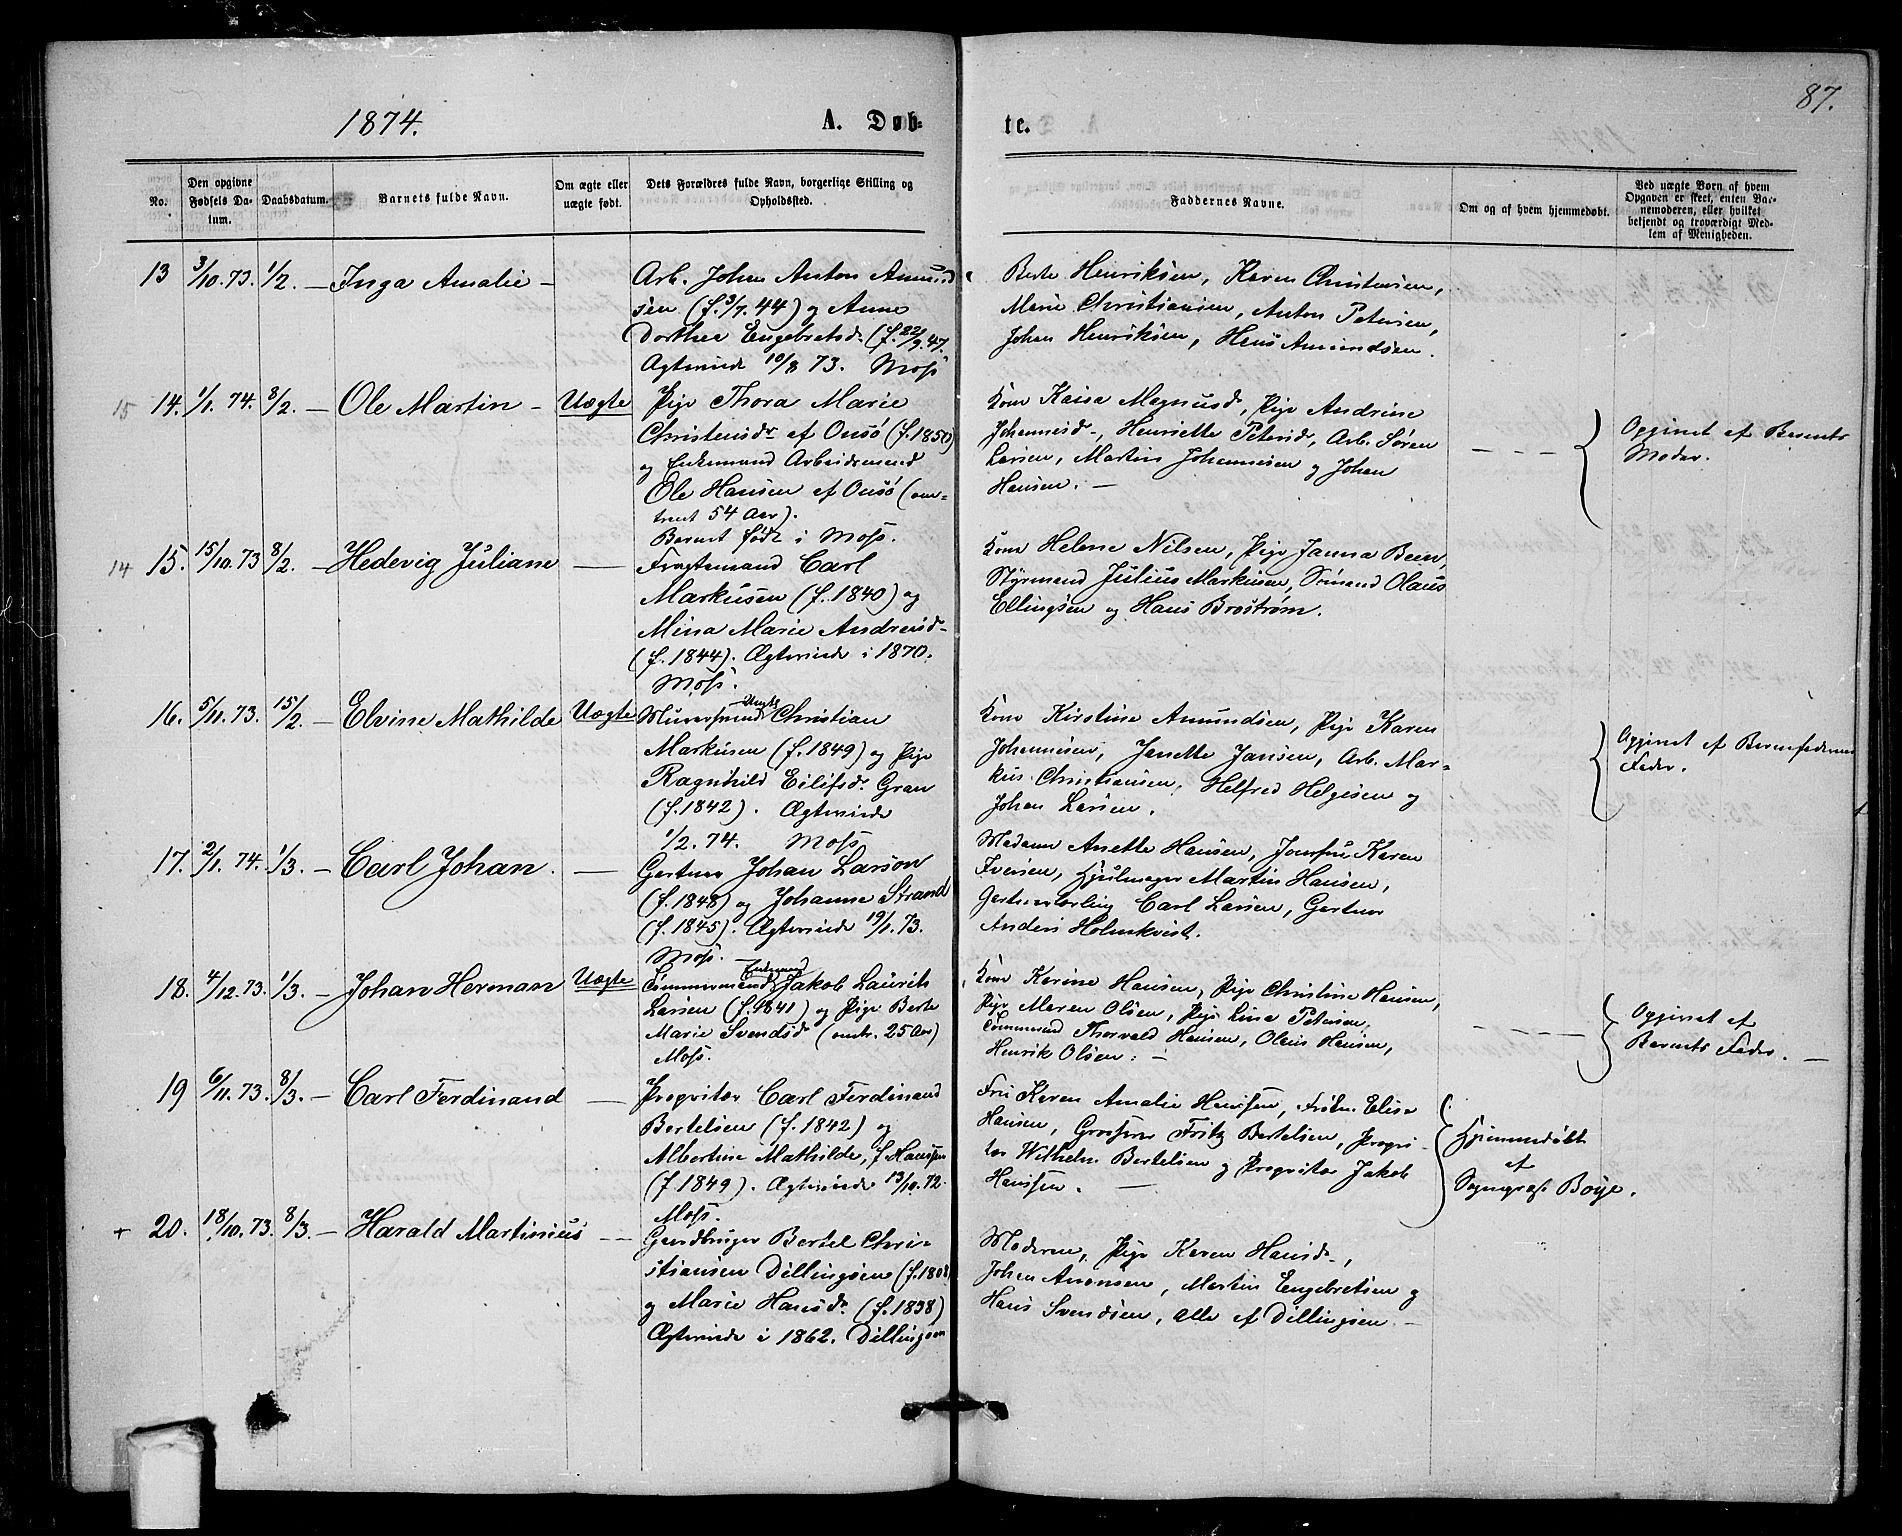 87.
1874. A. Døb- te.
No. Den opgivne Fødsels Da- tum. Daabsdatum. Barnets fulde Navn. Om ægte eller uægte født. Dets Forældres fulde Navn, borgerlige Stilling og Opholdssted. Faddernes Navne. Om og af hvem hjemmedøbt. Ved uægte Born af hvem Opgaven er skeet, enten Bar- nemoderen, eller hvilket bekjendt og troværdigt Med- lem af Menigheden.
13 3/10.73. 1/2. — Inga Amalie —
Arb. Johan Anton Amund
sen (f. 3/7.44) og Anne
Dorthea Engebretsd. (f. 22/9.47.
Ægteviede 10/8 73. Moss
Berte Henriksen, Karen Christensen,
Marie Christiansen, Anton Petersen,
Johan Henriksen, Hans Amundsen.
15 14. 1/1. 74. 8/2. — Ole Martin — Uægte
Pige Thora Marie
Christensdr af Onsö (f. 1850)
og Enkemand Arbeidsmand
Ole Hansen af Onsö (om-
trent 54 Aar).
Barnet født i Moss.
Kone Kaisa Magnusd., Pige Andrine
Johannesd., Henriette Petersd., Arb. Søren
Larsen, Martin Johannesen og Johan
Hansen. —
Opgivet af Barnets
Moder.
14 15. 15/10.73 8/2. — Hedevig Juliane —
Fragtemand Carl
Markusen (f. 1840) og
Mina Marie Andreasd.
(f. 1844). Ægteviede i 1870.
Moss.
Kone Helene Nilsen, Pige Janna Been,
Styrmand Julius Markusen, Sömand Olaus
Ellingsen og Hans Broström.
16. 5/11.73. 15/2. — Elvine Mathilde Uægte
Murersvend Ungk. Christian
Markusen (f. 1849) og Pige
Ragnhild Eilifsdr. Gran
(f. 1842). Ægteviede
1/2. 74. Moss
Kone Kirstine Amundsen, Pige Karen
Johannesen, Janette Jansen, Arb. Mar-
kus Christiansen, Helfred Helgesen og
Johan Larsen.
Opgivet af Barnefaderens
Fader.
17. 2/1. 74. 1/3. — Carl Johan. —
Gartner Johan Larson
(f. 1848) og Johanne Strand
(f. 1845). Ægteviede 19/1.73.
Moss. —
Madam Anette Hansen, Jomfru Karen
Iversen, Hjulmager Martin Hansen,
Gartnerlærling Carl Larsen, Gartner
Anders Holmkvist.
18. 4/12.73. 1/3. — Johan Herman Uægte
Tömmermand Enkemand Jakob Laurits
Larsen (f. 1841) og Pige Berte
Marie Svendsdr (omtr. 25 Aar)
Moss.
Kone Karine Hansen, Pige Christine Hansen,
Pige Maren Olsen, Pige Lina Petersen,
Tömmermd Thorvald Hansen, Olaus Hansen,
Henrik Olsen. —
Opgivet af
Barnets Fader. —
19 6/11.73. 8/3. — Carl Ferdinand —
Proprietær Carl Ferdinand
Bertelsen (f. 1842) og
Albertine Mathilde, f. Hanssen
(f. 1849). Ægteviede 13/10.72.
Moss.
Fru Karen Amalie Hanssen, Frøkn. Elise
Hansen, Grosserer Fritz Bertelsen, Propri-
tær Wilhelm Bertelsen og Proprietær Jakob
Hanssen. —
Hjemmedøbt
af
Sogneprest Boye.
+ 20. 18/10.73. 8/3. — Harald Martinius —
Gaardbruger Bertel Chri-
stiansen Dillingöen (f. 1808
og Marie Hansdr. (f. 1838)
Ægteviede i 1862. Dillingöen
Moderen, Pige Karen Hansd.,
Johan Aronsen, Martin Engebretsen og
Hans Svendsen, alle af Dillingöen. —